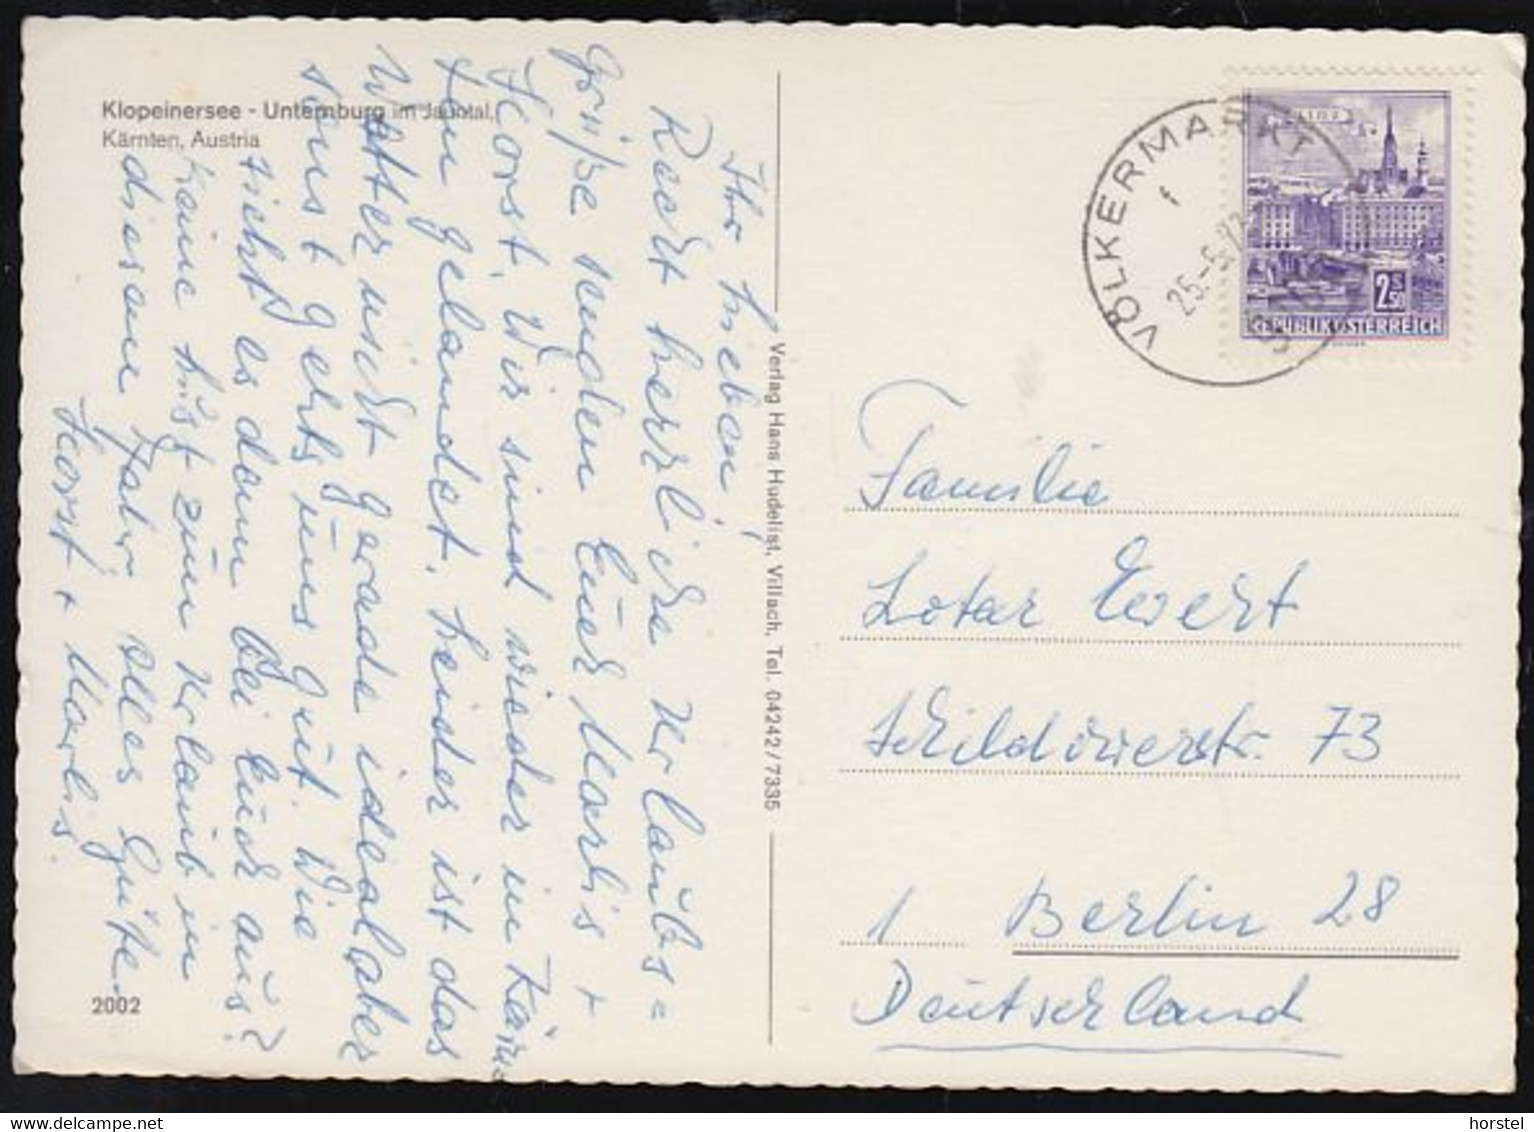 Klopeinersee - Unternburg im Jauntal,
Kärnten, Austria
Ihr Lieben,
Recht herzliche Urlaubs=
Grüße senden Euch Marlis +
Horst. Wir sind wieder in Kärn
ten gelandet. Leider ist das
Wetter nicht gerade ideal aber
sonst gehts uns gut. Wie
sieht es denn bei Euch aus?
Keine Lust zum Urlaub in
diesem Jahr. Alles Gute.
Horst + Marlis.
2002
Verlag Hans Hudelist, Villach, Tel. 04242/7335
VÖLKERMARKT
1
25.-6.
LINZ
2 S 50
REPUBLIK ÖSTERREICH
Familie
Lotar Ewert
Schildowerstr. 73
1 Berlin 28
Deutschland
delcampe.net
horstel